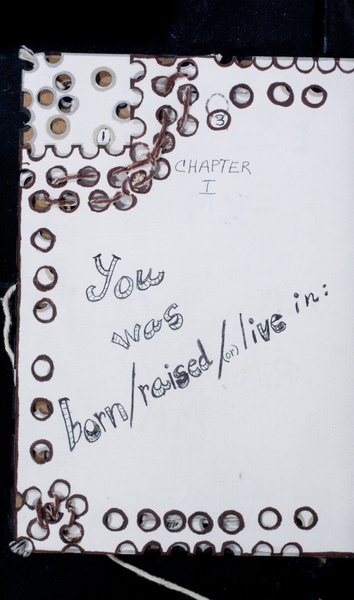 1
3
CHAPTER
I
You
was
born/raised/(or)live in: